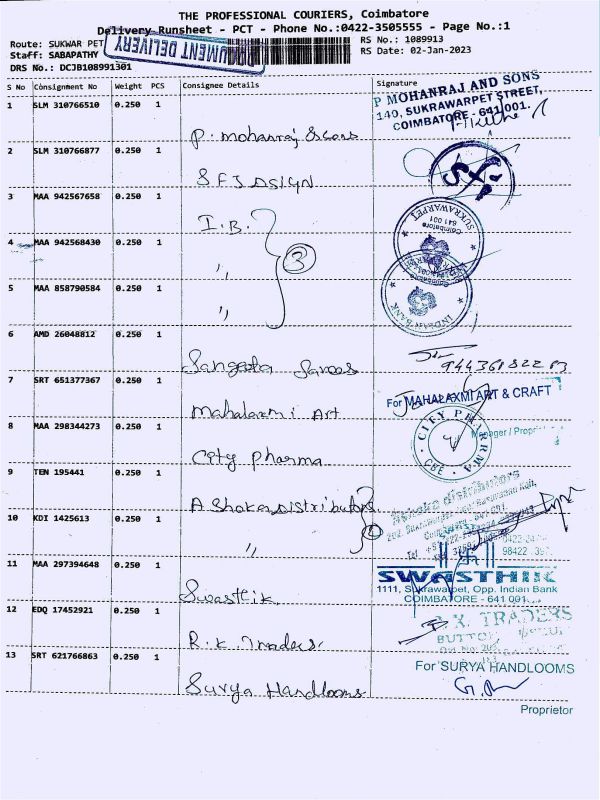 THE PROFESSIONAL COURIERS, Coimbatore
Delivery Runsheet - PCT - Phone No.:0422-3505555 - Page No.:1
Route: SUKWAR PET
RS No.: 1089913
Staff: SABAPATHY
RS Date: 02-Jan-2023
DRS No.: DCJB108991301
DOCUMENT DELIVERY
S No Consignment No Weight PCS Consignee Details Signature
1 SLM 310766510 0.250 1
P. mohanraj & sons
P MOHANRAJ AND SONS
140, SUKRAWARPET STREET,
COIMBATORE - 641 001.
2 SLM 310766877 0.250 1
SFJ DSIGN
3 MAA 942567658 0.250 1
I.B.
SUKRAWARPET
Coimbatore
641 001
4 MAA 942568430 0.250 1
,,
3
5 MAA 858790584 0.250 1
,,
INDIAN BANK
6 AMD 26048812 0.250 1
Sangeeta Sarees
7 SRT 651377367 0.250 1
Mahalaxmi Art
For MAHALAXMI ART & CRAFT
8 MAA 298344273 0.250 1
City pharma
CITY PHARMA
CBE
9 TEN 195441 0.250 1
A Shoka Distributors
10 KDI 1425613 0.250 1
,,
11 MAA 297394648 0.250 1
Swasthik
SWASTHIK
1111, Sukrawarpet, Opp. Indian Bank
COIMBATORE - 641 001.
12 EDQ 17452921 0.250 1
R.K Traders
R.K. TRADERS
13 SRT 621766863 0.250 1
Surya Handlooms
For SURYA HANDLOOMS
Proprietor